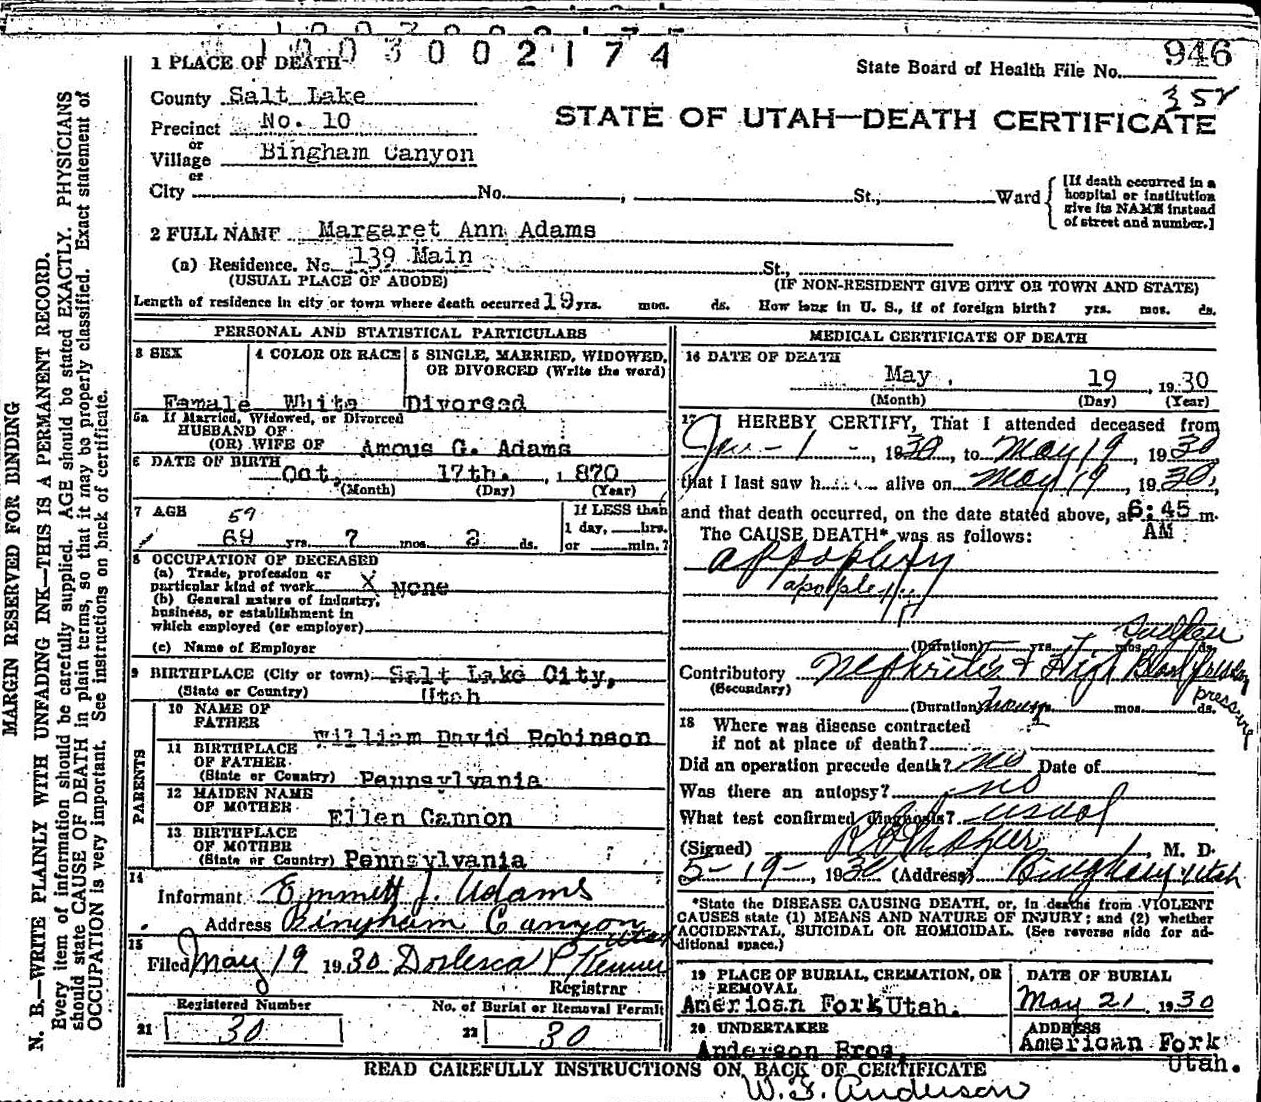 1003002174
946
1 PLACE OF DEATH
State Board of Health File No.
352
County Salt Lake
STATE OF UTAH—DEATH CERTIFICATE
Precinct No. 10
or
Village Bingham Canyon
or
City No. , St., Ward
[If death occurred in a
hospital or institution
give its NAME instead
of street and number.]
2 FULL NAME Margaret Ann Adams
(a) Residence. No. 139 Main St.,
(USUAL PLACE OF ABODE) (IF NON-RESIDENT GIVE CITY OR TOWN AND STATE)
Length of residence in city or town where death occurred 19 yrs. mos. ds. How long in U. S., if of foreign birth? yrs. mos. ds.
PERSONAL AND STATISTICAL PARTICULARS
3 SEX 4 COLOR OR RACE 5 SINGLE, MARRIED, WIDOWED,
OR DIVORCED (Write the word)
Female White Divorced
5a If Married, Widowed, or Divorced
HUSBAND OF
(OR) WIFE OF Amous G. Adams
6 DATE OF BIRTH
Oct. 17th. , 1870
(Month) (Day) (Year)
7 AGE 59 If LESS than
1 day, hrs.
69 yrs. 7 mos. 2 ds. or min.?
8 OCCUPATION OF DECEASED
(a) Trade, profession or
particular kind of work X None
(b) General nature of industry,
business, or establishment in
which employed (or employer)
(c) Name of Employer
9 BIRTHPLACE (City or town) Salt Lake City,
(State or Country) Utah
PARENTS
10 NAME OF
FATHER William David Robinson
11 BIRTHPLACE
OF FATHER
(State or Country) Pennsylvania
12 MAIDEN NAME
OF MOTHER Ellen Cannon
13 BIRTHPLACE
OF MOTHER
(State or Country) Pennsylvania
14
Informant Emmett J. Adams
Address Bingham Canyon
Utah
15
Filed May 19 1930
Registrar
Registered Number No. of Burial or Removal Permit
21 30 22 30
MEDICAL CERTIFICATE OF DEATH
16 DATE OF DEATH
May 19 , 1930
(Month) (Day) (Year)
17 I HEREBY CERTIFY, That I attended deceased from
1 - , 1930, to May 19, 1930
that I last saw h alive on May 19, 1930,
and that death occurred, on the date stated above, at 6:45 m.
AM
The CAUSE DEATH* was as follows:
apoplexy
apoplexy
(Duration) yrs. mos. ds.
Contributory Nephritis & High Blood pressure
(Secondary) pressure
(Duration) mos. ds.
18 Where was disease contracted
if not at place of death?
Did an operation precede death? no Date of
Was there an autopsy? no
What test confirmed diagnosis? usual
(Signed) , M. D.
5-19-, 1930 (Address) Bingham, Utah
*State the DISEASE CAUSING DEATH, or, in deaths from VIOLENT
CAUSES state (1) MEANS AND NATURE OF INJURY; and (2) whether
ACCIDENTAL, SUICIDAL OR HOMICIDAL. (See reverse side for ad-
ditional space.)
19 PLACE OF BURIAL, CREMATION, OR
REMOVAL
American Fork Utah.
DATE OF BURIAL
May 21 1930
20 UNDERTAKER
Anderson Bros.
ADDRESS
American Fork
Utah.
READ CAREFULLY INSTRUCTIONS ON BACK OF CERTIFICATE
W. F. Anderson
MARGIN RESERVED FOR BINDING
N. B.—WRITE PLAINLY WITH UNFADING INK—THIS IS A PERMANENT RECORD.
Every item of information should be carefully supplied. AGE should be stated EXACTLY. PHYSICIANS
should state CAUSE OF DEATH in plain terms, so that it may be properly classified. Exact statement of
OCCUPATION is very important. See instructions on back of certificate.